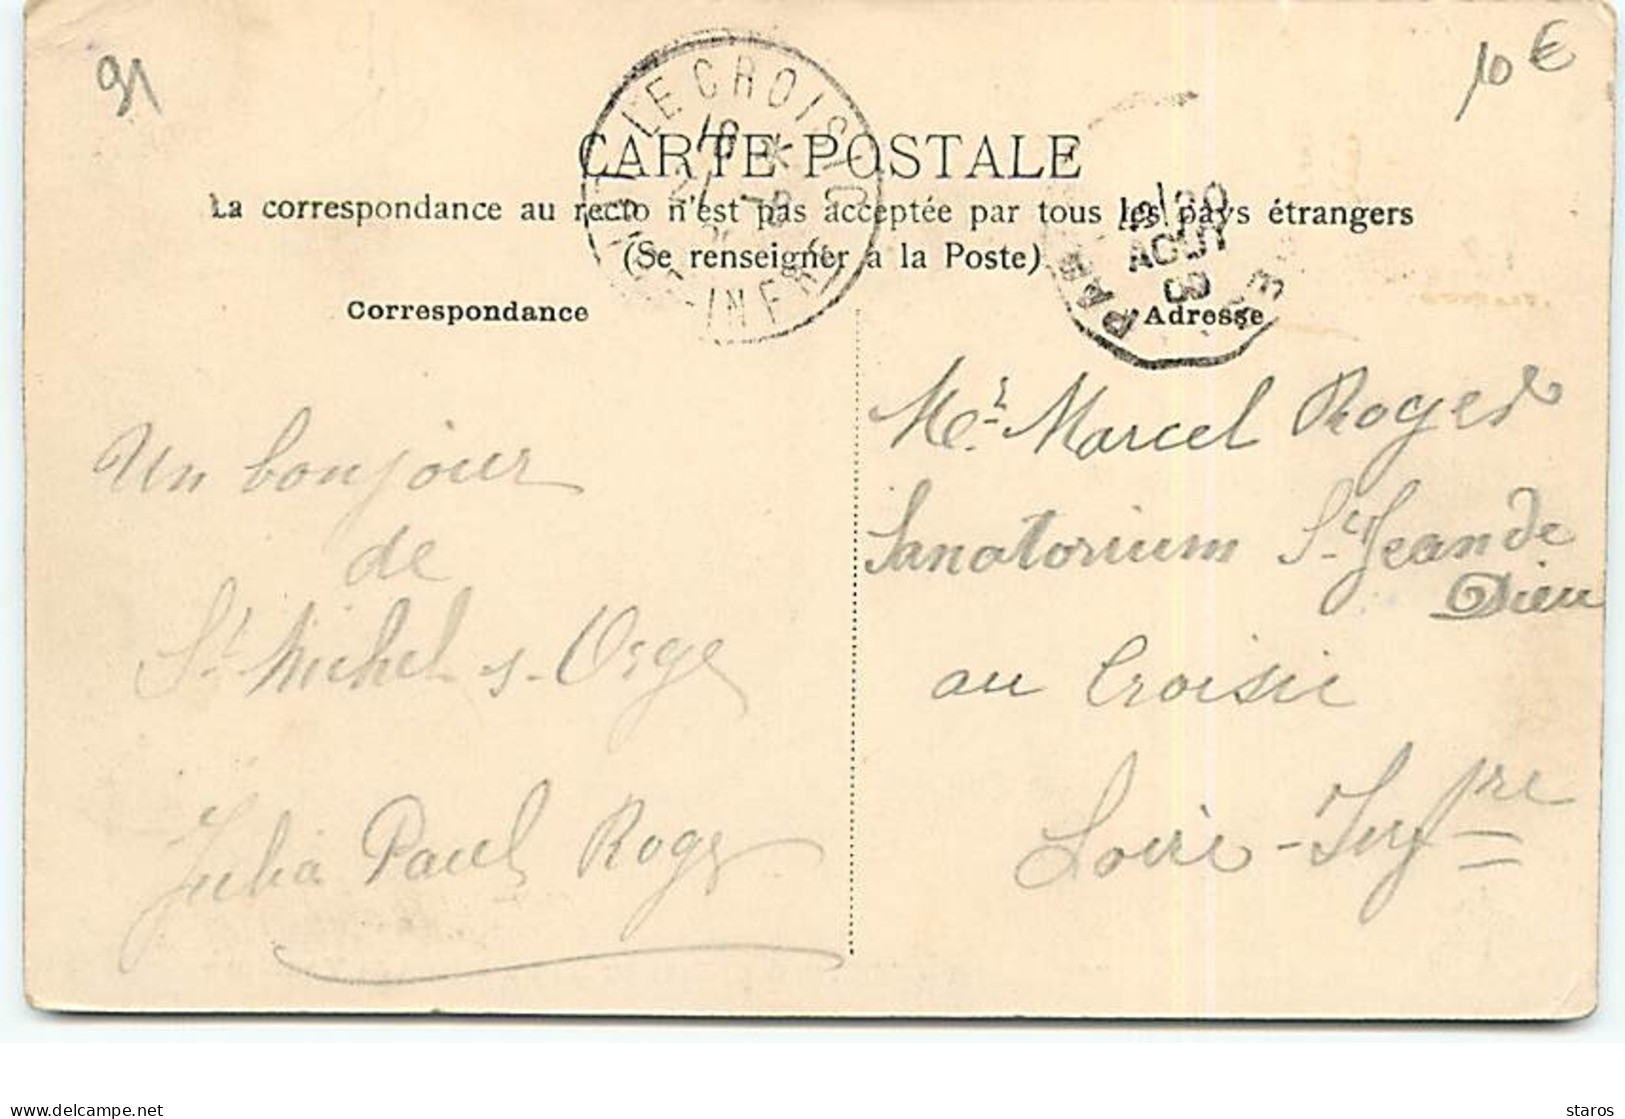 91
10 €
LE CROISIC
CARTE POSTALE
La correspondance au recto n'est pas acceptée par tous les pays étrangers
(Se renseigner à la Poste)
AOUT
09
Correspondance
Adresse
Un bonjour
de
St Michel s. Orge
Julia Paul Roger
Mr Marcel Roger
Sanatorium St Jean de
Dieu
au Croisic
Loire-Infre
delcampe.net
staros